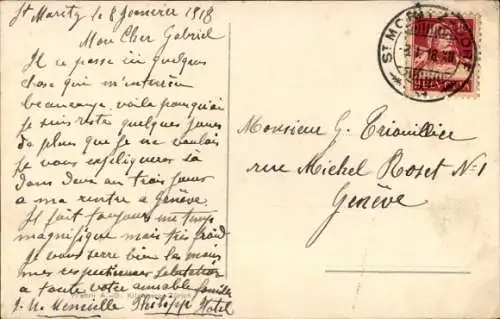 St Moritz le 8 Janvier 1918
Mon Cher Gabriel
Il ce passe ici quelques
chose qui m'interesse
beaucoup, voila pourquoi
je suis reste quelques jours
de plus que je ne voulais
je vous expliquerez sa
dans deux au trois jours
a ma rentre a Genève.
Il fait toujours un temps
magnifique mais tres froid
Je vous serre bien les mains
mes respectueuses salutations
a toute votre aimable famille
Philippe Hotel
ST MORITZ
Monsieur G. Triouillier
rue Michel Roset No 1
Genève